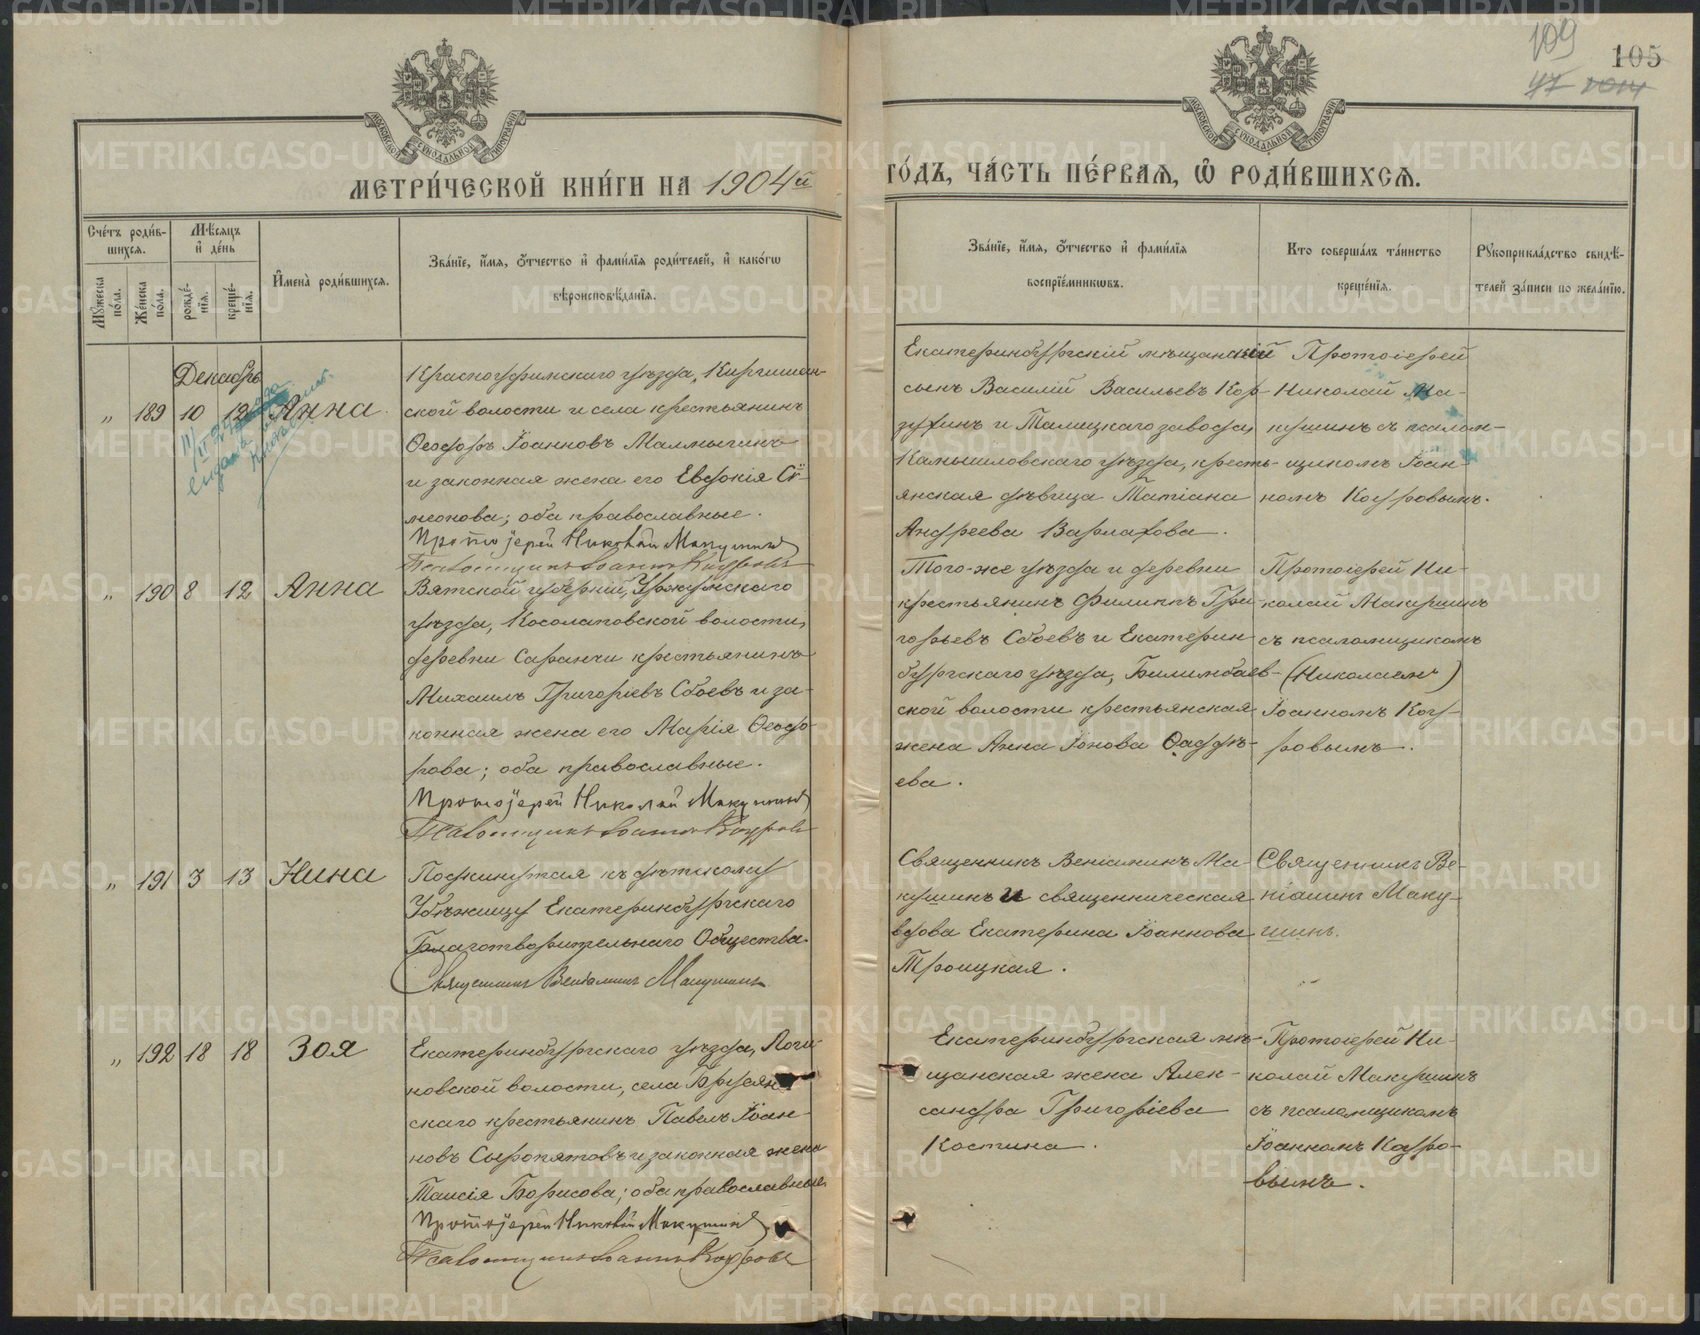 109
105
47
МОСКОВСКОЙ СѴНОДАЛЬНОЙ ТИПОГРАФІИ
МОСКОВСКОЙ СѴНОДАЛЬНОЙ ТИПОГРАФІИ
МЕТРИ́ЧЕСКОЙ КНИ́ГИ НА 1904й
ГО́ДЪ, ЧА́СТЬ ПЕ́РВАѦ, Ѽ РОДИ́ВШИХСѦ.
Сче́тъ роди́в-
шихсѧ.
Мѣ́сяцъ
и҆ де́нь
Мꙋ́жеска
по́ла.
Же́нска
по́ла.
рожде́-
нїѧ.
креще́-
нїѧ.
И҆мена̀ роди́вшихсѧ.
Зва́нїе, и҆́мѧ, ѻ҆́тчество и҆ фами́лїѧ роди́телей, и҆ како́гѡ
вѣроисповѣ́данїѧ.
Зва́нїе, и҆́мѧ, ѻ҆́тчество и҆ фами́лїѧ
воспрїе́мникѡвъ.
Кто соверша́лъ та́инство
креще́нїѧ.
Рꙋкоприкла́дство свидѣ́-
телей за́писи по жела́нїю.
Декабрь
„ 189 10 12 Анна.
Красноуфимскаго уѣзда, Киргишан-
ской волости и села крестьянинъ
Ѳеодоръ Іоанновъ Малмыгинъ
и законная жена его Евдокія Сѵ-
меонова; оба православные.
Протоіерей Николай Макушинъ
Псаломщикъ Іоаннъ Кодровъ
Екатеринбургскій мѣщанскій
сынъ Василій Васильевъ Кор-
зухинъ и Талицкаго завода,
Камышловскаго уѣзда, кресть-
янская дѣвица Татіана
Андреева Варлакова.
Протоіерей
Николай Ма-
кушинъ съ псалом-
щикомъ Іоан-
номъ Кодровымъ.
„ 190 8 12 Анна
Вятской губерніи, Уржумскаго
уѣзда, Косолаповской волости,
деревни Саранчи крестьянинъ
Михаилъ Григоріевъ Сбоевъ и за-
конная жена его Марія Ѳеодо-
рова; оба православные.
Протоіерей Николай Макушинъ
Псаломщикъ Іоаннъ Кодровъ
Того-же уѣзда и деревни
крестьянинъ Филиппъ Гри-
горьевъ Сбоевъ и Екатерин-
бургскаго уѣзда, Билимбаев-
ской волости крестьянская
жена Анна Іонова Ѳаддѣ-
ева.
Протоіерей Ни-
колай Макушинъ
съ псаломщикомъ
(Николаемъ)
Іоанномъ Код-
ровымъ.
„ 191 3 13 Нина
Подкинутая къ дѣтскому
Убѣжищу Екатеринбургскаго
Благотворительнаго Общества.
Священникъ Веніаминъ Макушинъ
Священникъ Веніаминъ Ма-
кушинъ и священническая
вдова Екатерина Іоаннова
Троицкая.
Священникъ Ве-
ніаминъ Маку-
шинъ.
„ 192 18 18 Зоя
Екатеринбургскаго уѣзда, Логи-
новской волости, села Бруян-
скаго крестьянинъ Павелъ Іоан-
новъ Сыропятовъ и законная жена
Таисія Борисова; оба православные.
Протоіерей Николай Макушинъ
Псаломщикъ Іоаннъ Кодровъ
Екатеринбургская мѣ-
щанская жена Алек-
сандра Григоріева
Костина.
Протоіерей Ни-
колай Макушинъ
съ псаломщикомъ
Іоанномъ Кодро-
вымъ.
METRIKI.GASO-URAL.RU